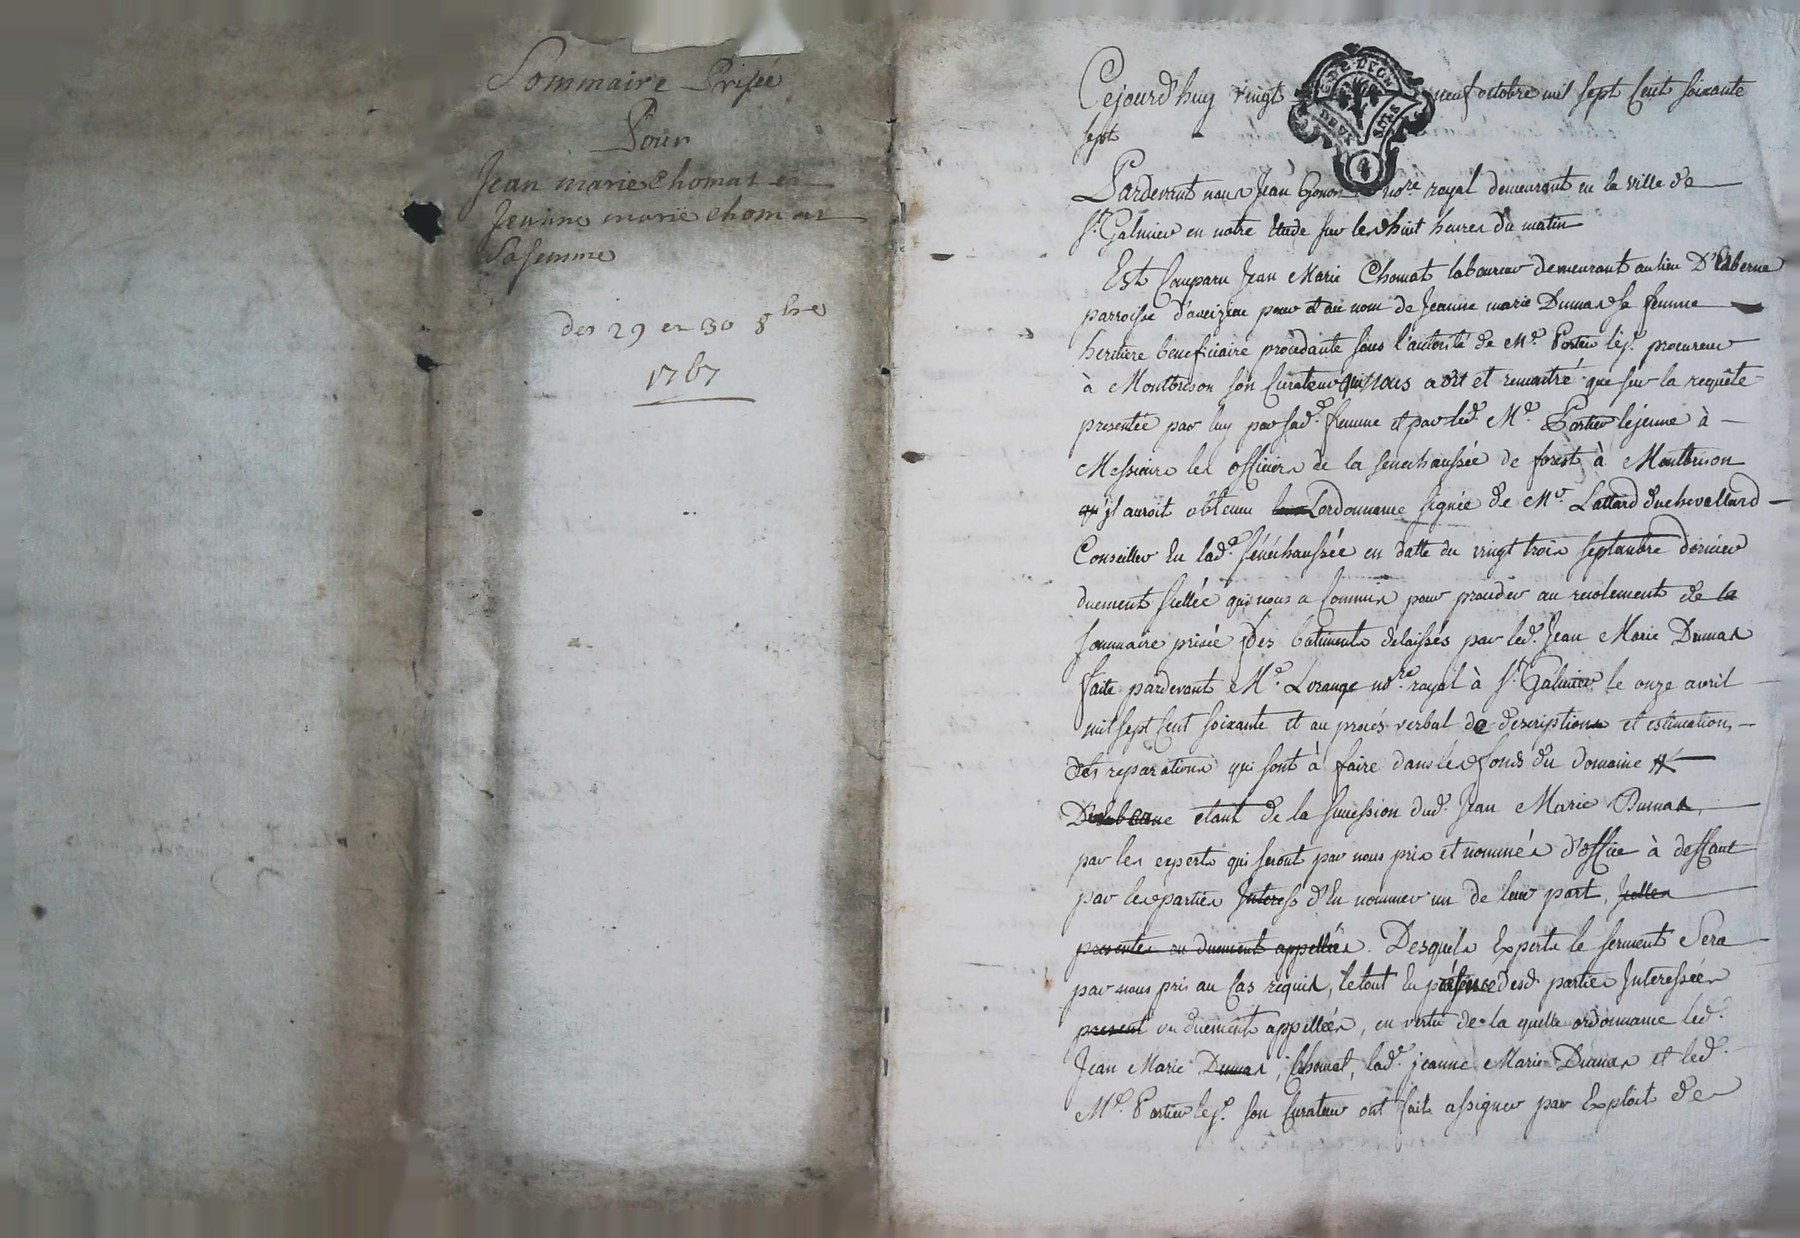 Sommaire Prisée
Pour
Jean marie Chomat et
Jeanne marie chomat
Sa femme
des 29 et 30 8bre
1767
Cejourd'huy vingt neuf octobre mil sept Cent soixante
sept
Pardevant nous Jean no.re royal demeurant en la ville de
St. Galmier en notre étude sur les huit heures du matin
Est Comparu Jean Marie Chomat laboureur demeurant au lieu D'
parroisse d'aveizieu pour et au nom de Jeanne marie Dumas sa femme
heritiere beneficiaire procedante sous l'autorité de Me. Portier lej.e procureur
à Montbrison son Curateur qui nous a dit et remontré que sur la requête
presentée par luy par sad.e femme et par led. Me. Portier lejeune à
Messieurs les officiers de la senechaussée de forest à Montbrison
jl auroit obtenu Lordonnance signée de Mr. Lattard duchevallard
Conseiller En lad.e sénéchaussée en datte du vingt trois septambre dernier
duement scellée qui nous a Commis pour proceder au recolement de la
sommaire prisée des batiments delaissés par led. Jean Marie Dumas
faite pardevant Me. Lorange no.re royal à St. Galmier le onze avril
mil sept Cent soixante et au procés verbal de description et estimation
des reparations qui sont à faire dans les fonds du Domaine
étant de la succession dud. Jean Marie Dumas,
par les experts qui seront par nous pris et nommés d'office à deffaut
par les parties Interess d'En nommer un de leur part,
presentes ou duement appellées. Desquels Experts le serment Sera
par nous pris au Cas requis, le tout En présence desd. parties Interessées
present ou duement appellées, en vertu de la quelle ordonnance led.
Jean Marie Dumas, Chomat, lad.e jeanne Marie Dumas et led.
Me. Portier lej.e son Curateur ont fait assigner par Exploit de